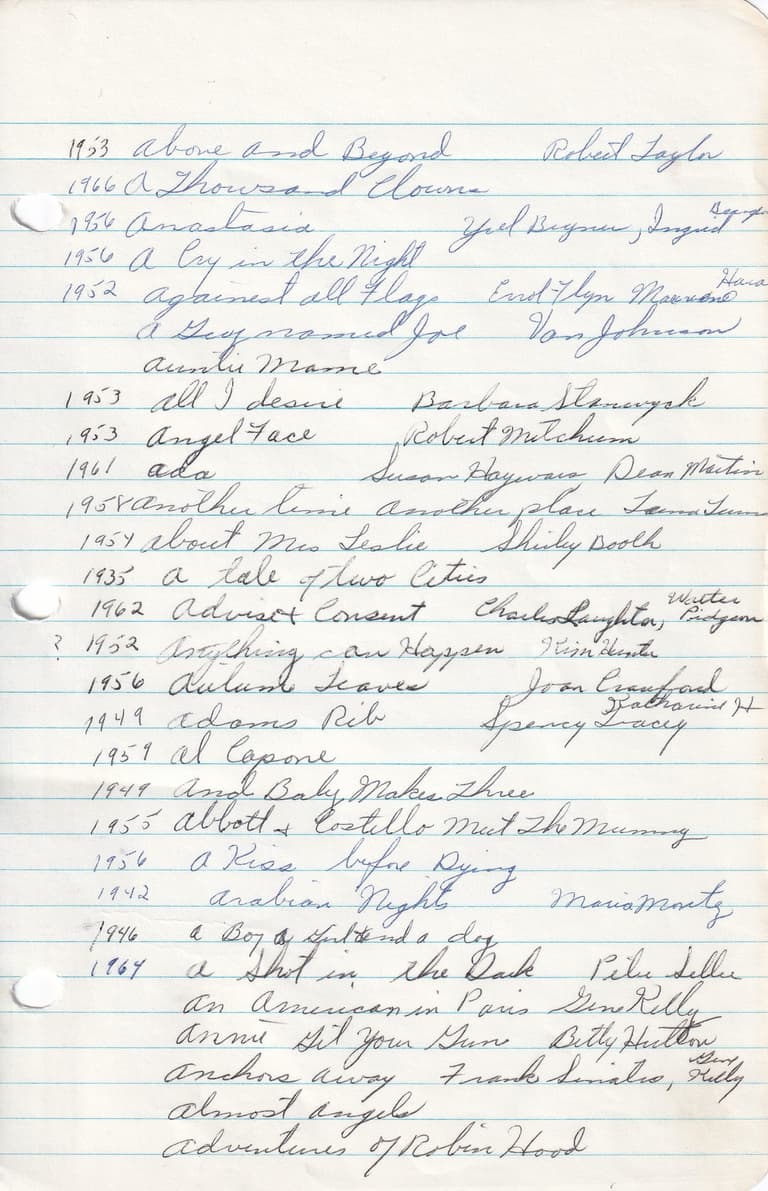 1953 Above and Beyond Robert Taylor
1966 A Thousand Clowns
1956 Anastasia Yul Bryner, Ingrid
1956 A Cry in the Night
1952 Against all Flags Errol Flyn Maureen Hara
A Guy named Joe Van Johnson
Auntie Mame
1953 All I desire Barbara Stanwyck
1953 Angel Face Robert Mitchum
1961 Ada Susan Hayward Dean Martin
1958 Another time Another place Lana Turn
1954 About Mrs Leslie Shirley Booth
1935 A tale of two Cities
1962 Advise & Consent Charles Laughton, Walter Pidgeon
? 1952 Anything can Happen Kim Hunter
1956 Autumn Leaves Joan Crawford
1949 Adams Rib Spency Tracey Katharine H
1959 Al Capone
1949 And Baby Makes Three
1955 Abbott & Costello Meet The Mummy
1956 A Kiss before Dying
1942 Arabian Nights Maria Montez
1946 A Boy a Girl and a dog
1964 A Shot in the Dark Peter Seller
An American in Paris Gene Kelly
Annie Get Your Gun Betty Hutton
Anchors Away Frank Sinatra, Gene Kelly
Almost Angels
Adventures of Robin Hood